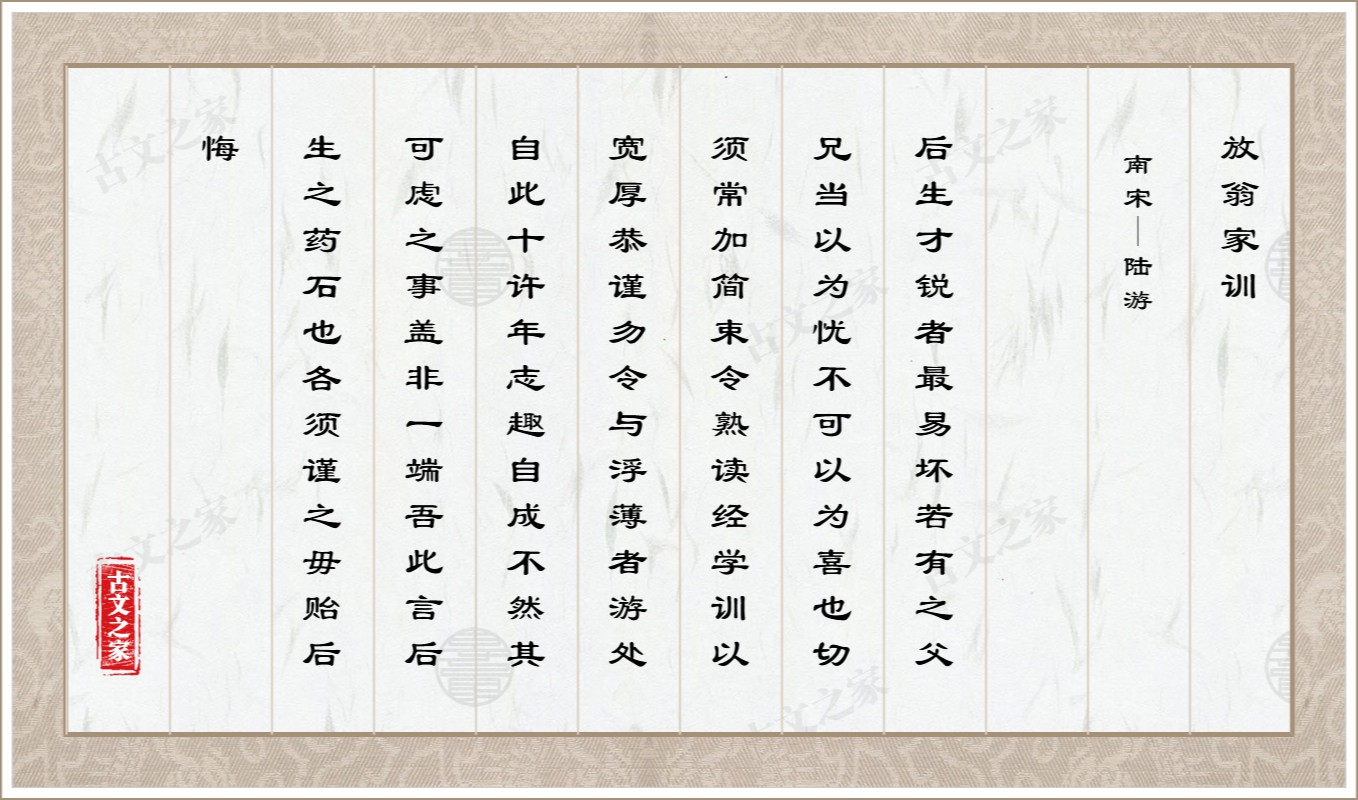 放翁家训
南宋—陆游
后生才锐者最易坏若有之父
兄当以为忧不可以为喜也切
须常加简束令熟读经学训以
宽厚恭谨勿令与浮薄者游处
自此十许年志趣自成不然其
可虑之事盖非一端吾此言后
生之药石也各须谨之毋贻后
悔
古文之家
古文之家
古文之家
古文之家
古文之家
古文之家
古文之家